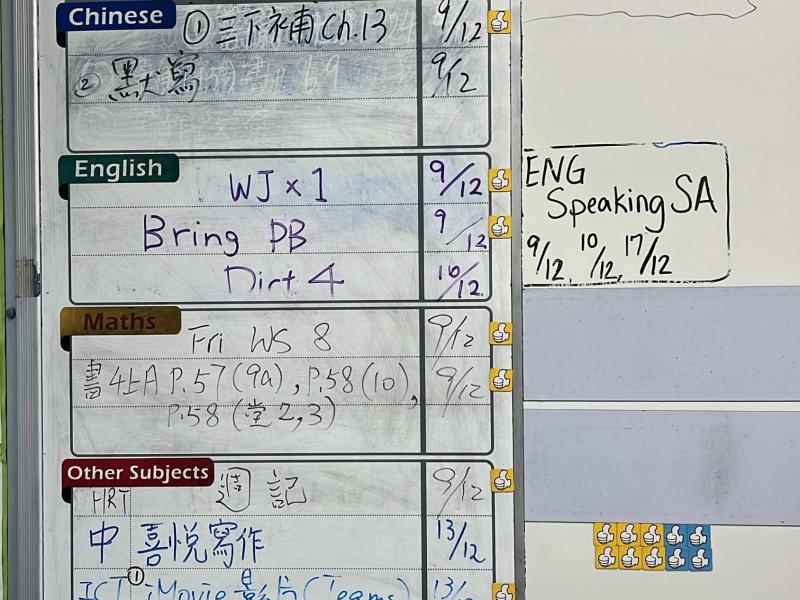 Chinese
① 三下補 Ch.13 9/12
② 默寫 9/12
English
WJ × 1 9/12
Bring PB 9/12
Dict 4 10/12
Maths
Fri WS 8 9/12
書4上A P.57(9a), P.58(10), 9/12
P.58(堂2,3)
Other Subjects
HRT 週記 9/12
中 喜悅寫作 13/12
ICT ① iMovie影片(Teams) 13/12
ENG
Speaking SA
9/12, 10/12, 17/12